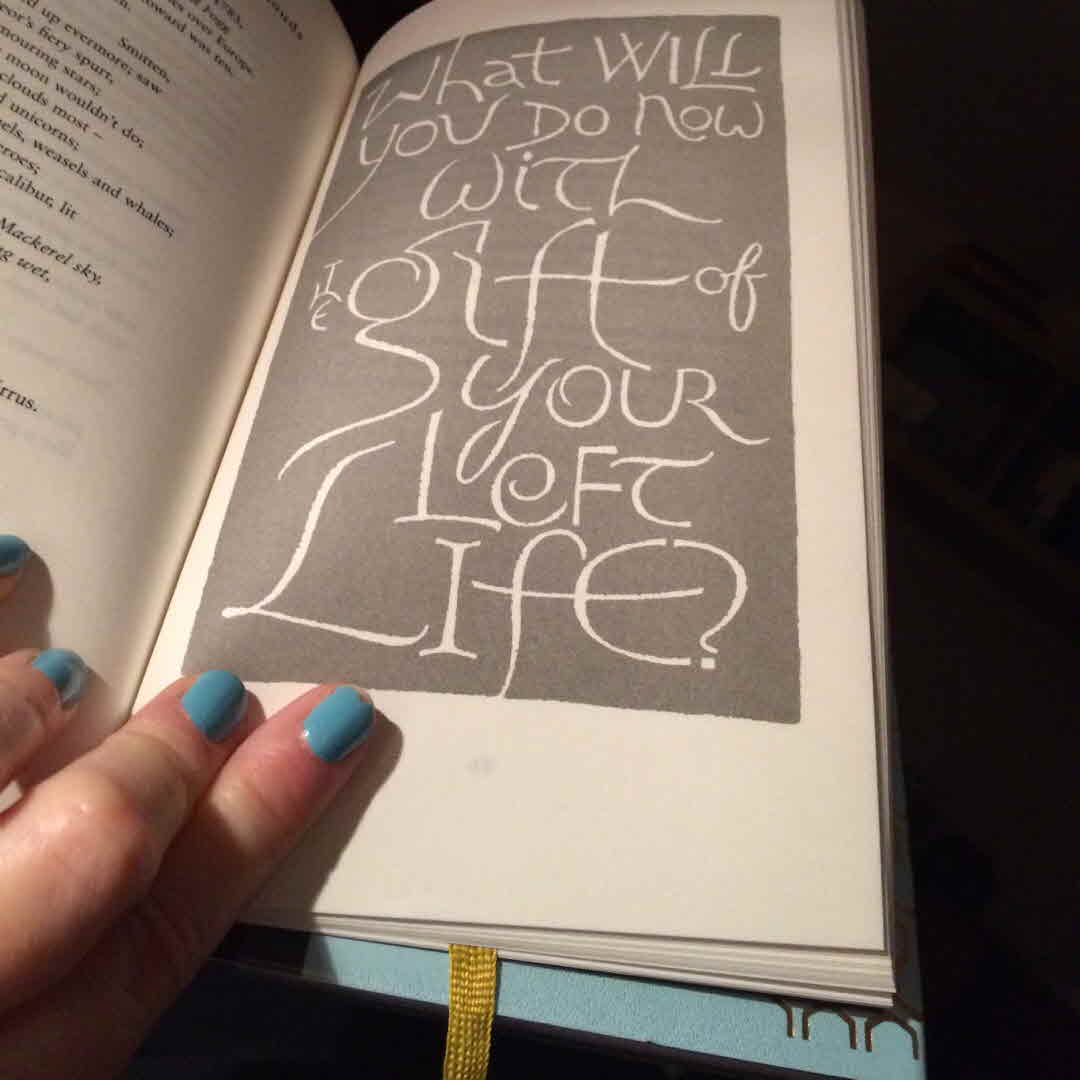 over Europe.
toward was ten.
Smitten,
d up evermore; saw
or's fiery spurt,
nouring stars;
moon wouldn't do;
clouds most –
d unicorns;
els, weasels and whales;
eroes;
calibur, lit
Mackerel sky,
ng wet,
rrus.
What WILL
you Do Now
with
THE Gift of
your
Left
Life?